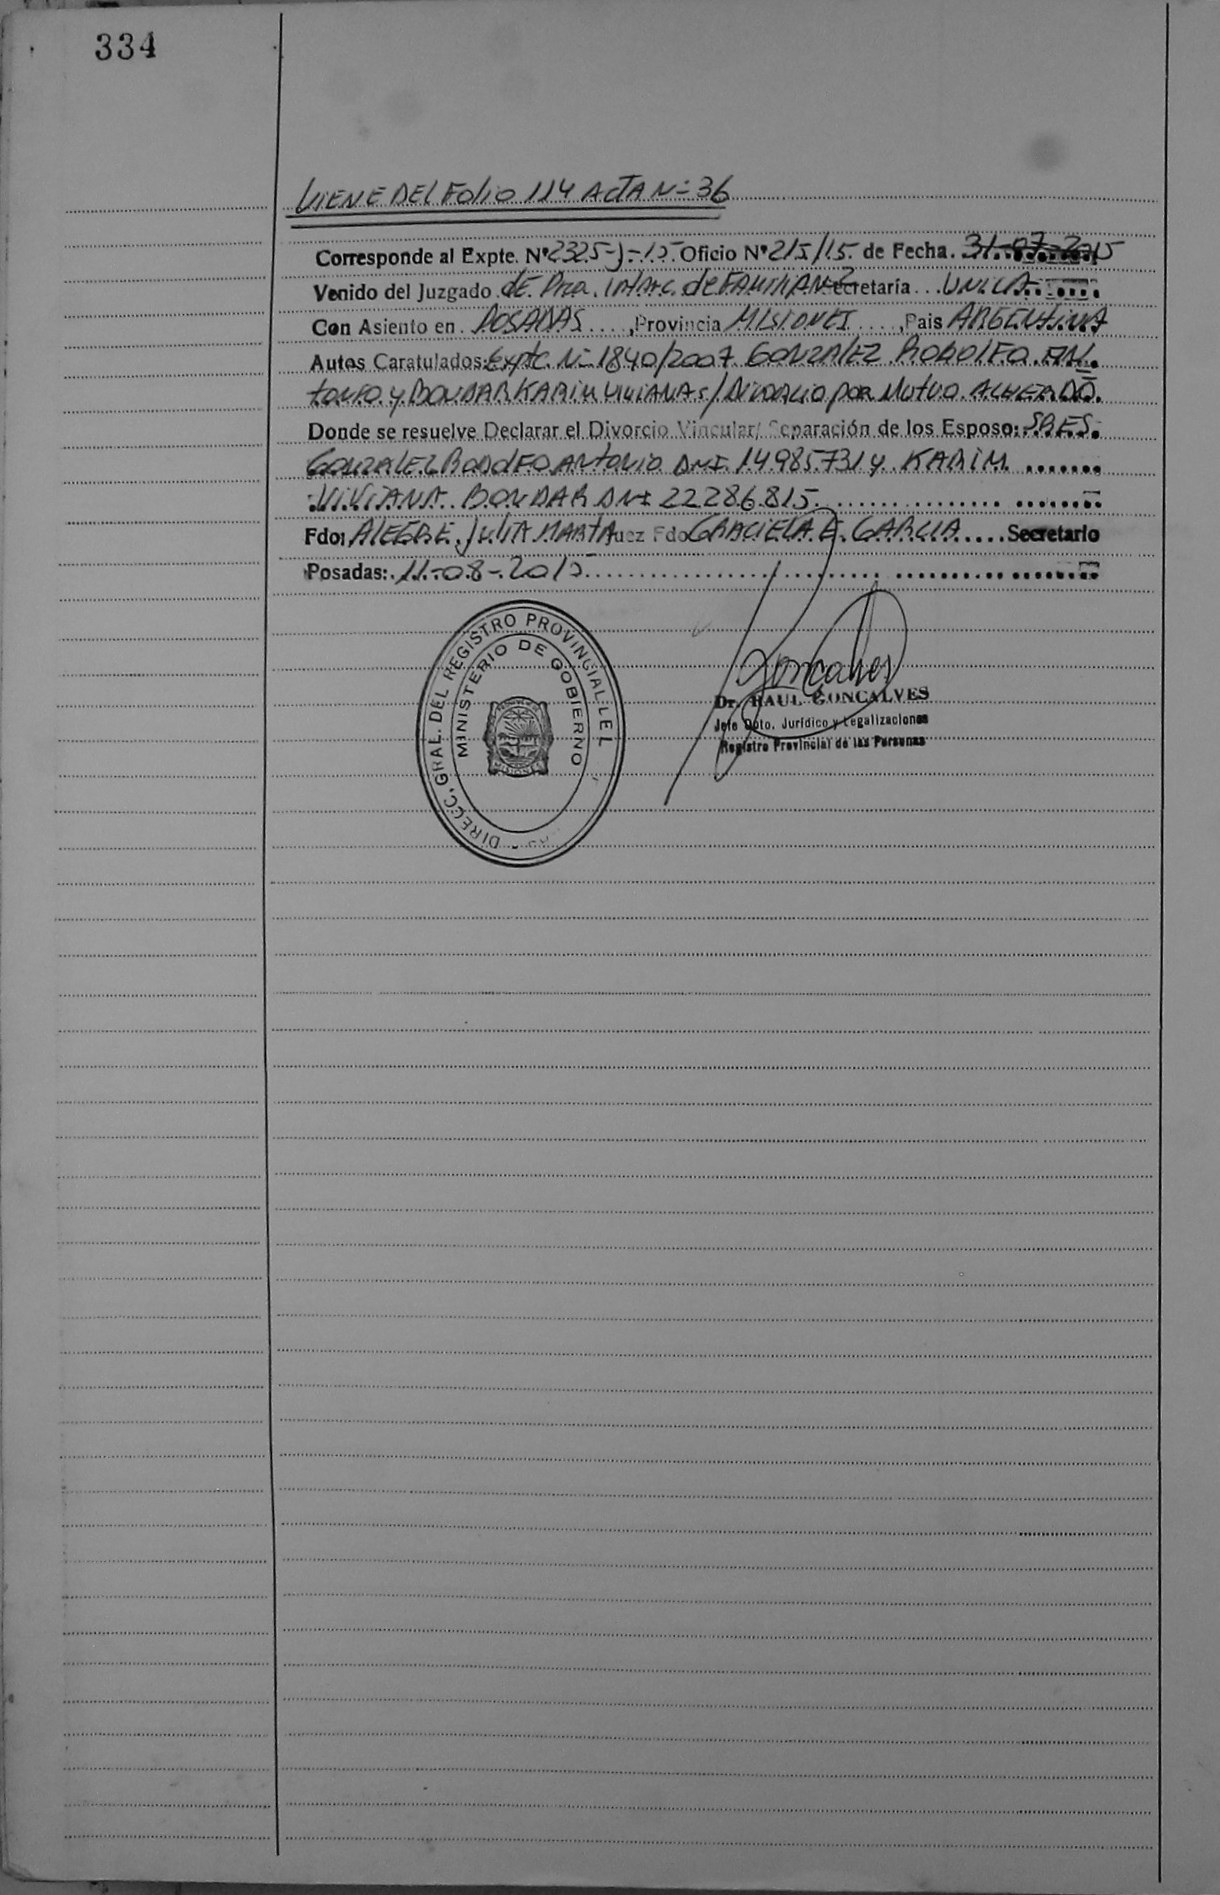 334
VIENE DEL FOLIO 114 ACTA Nº 36
Corresponde al Expte. Nº 2325-J-15 Oficio Nº 215/15. de Fecha. 31-07-2015
Venido del Juzgado de Pra. Intac. de FAMILIA Nº 2 Secretaría UNICA
Con Asiento en POSADAS, Provincia MISIONES, Pais ARGENTINA
Autos Caratulados: Expte. Nº 1840/2007 GONZALEZ RODOLFO AN-
TONIO y BONDAR KARIM VIVIANA s/ Divorcio por Mutuo ACUERDO.
Donde se resuelve Declarar el Divorcio Vincular/ Separación de los Esposo: SRES.
GONZALEZ RODOLFO ANTONIO DNI 14985731 y KARIM
VIVIANA BONDAR DNI 22286815
Fdo: ALEGRE JULIA MARTA Juez Fdo GRACIELA E. GARCIA Secretario
Posadas: 11-08-2015
DIRECC. GRAL. DEL REGISTRO PROVINCIAL DE L
MINISTERIO DE GOBIERNO
MISIONES
Goncalves
Dr. RAUL GONCALVES
Jefe Dpto. Jurídico y Legalizaciones
Registro Provincial de las Personas